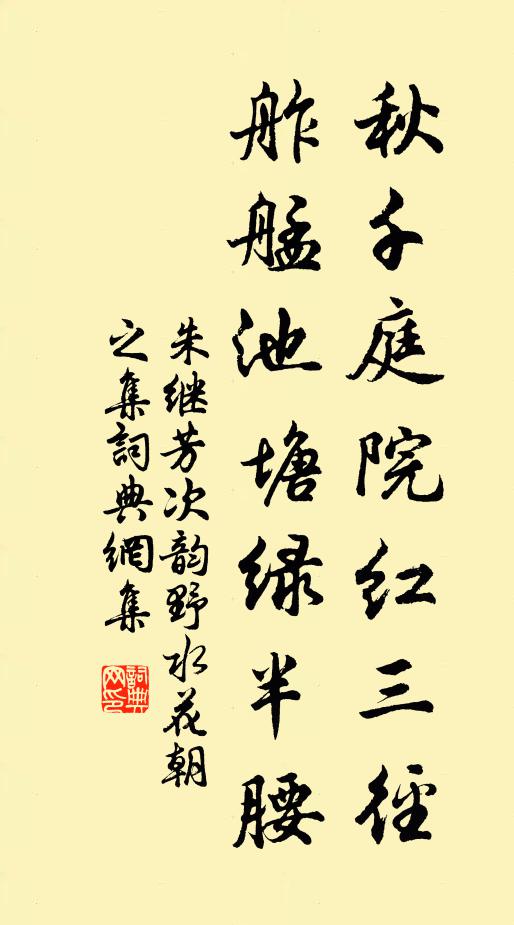 秋千庭院红三径
舴艋池塘绿半腰
朱继芳次韵野水花朝
之集詞典網集
詞典网印